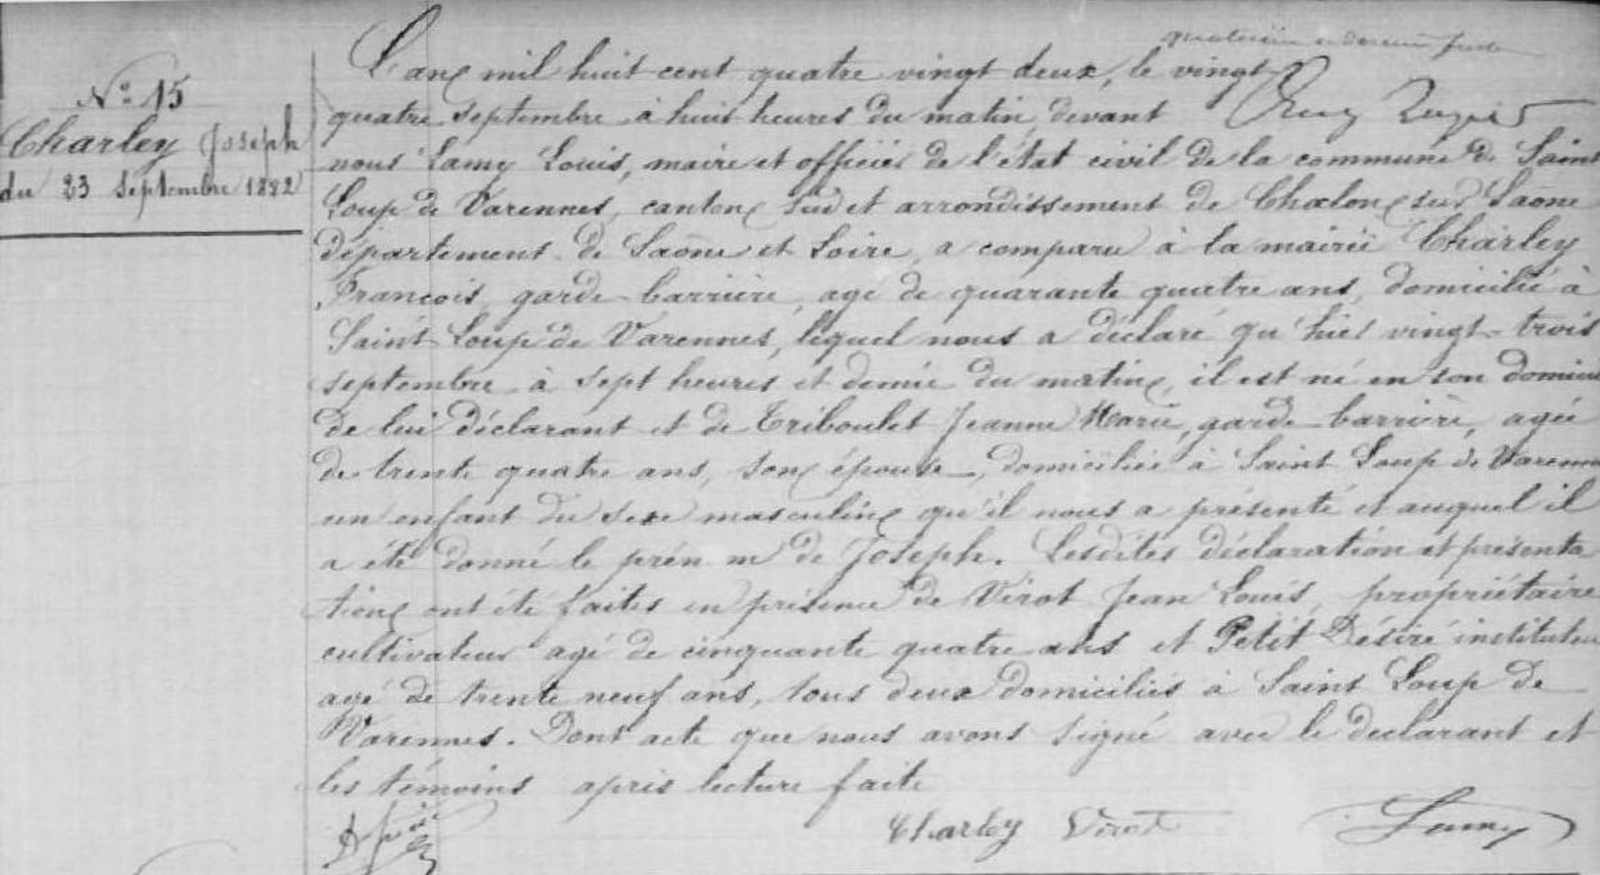 Nº 15
Charley Joseph
du 23 septembre 1882
L'an mil huit cent quatre vingt deux, le vingt
quatre septembre à huit heures du matin devant
nous Lamy Louis, maire et officier de l'état civil de la commune de Saint
Loup de Varennes, canton sud et arrondissement de Chalon sur Saône
département de Saône et Loire, a comparu à la mairie Charley
François, garde-barrière, agé de quarante quatre ans, domicilié à
Saint Loup de Varennes, lequel nous a déclaré qu'hier vingt-trois
septembre à sept heures et demie du matin, il est né en son domicile
de lui déclarant et de Triboulet Jeanne Marie, garde-barrière, agée
de trente quatre ans, son épouse, domiciliée à Saint Loup de Varennes
un enfant du sexe masculin qu'il nous a présenté et auquel il
a été donné le prén m de Joseph. Lesdites déclaration et présenta
tion ont été faites en présence de Virot Jean Louis, propriétaire
cultivateur agé de cinquante quatre ans et Petit Désiré instituteur
agé de trente neuf ans, tous deux domiciliés à Saint Loup de
Varennes. Dont acte que nous avons signé avec le déclarant et
les témoins après lecture faite
Charley Virot Lamy